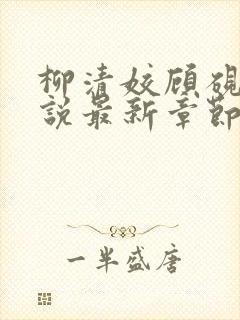 柳清姣顾砚
说最新章节
一半盛唐